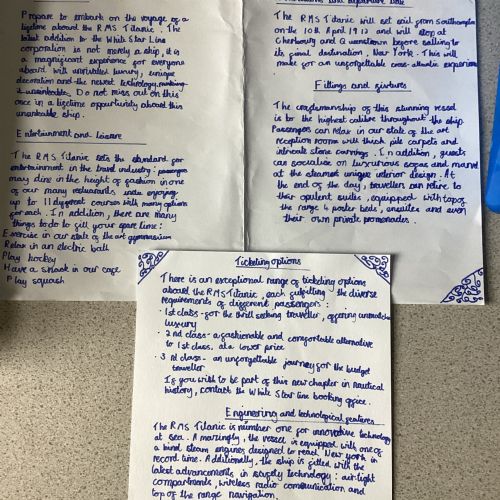 Prepare to embark on the voyage of a
lifetime aboard the RMS Titanic. The
latest addition to the White Star Line
corporation is not merely a ship, it is
a magnificent experience for everyone
aboard with unrivalled luxury, unique
decoration and the newest technology, making
it unsinkable. Do not miss out on this
once in a lifetime opportunity aboard this
unsinkable ship.
Entertainment and leisure
The RMS Titanic sets the standard for
entertainment in the travel industry: passengers
may dine in the height of fashion in one
of our many restaurants while enjoying
up to 11 different courses with many options
for each. In addition, there are many
things to do to fill your spare time:
Exercise in our state of the art gymnasium
Relax in an electric bath
Play hockey
Have a snack in our cafe
Play squash
and departure Date
The RMS Titanic will set sail from Southampton
on the 10th April 1912 and will stop at
Cherbourg and Queenstown before sailing to
its final destination, New York. This will
make for an unforgettable cross-atlantic experience
Fittings and fixtures
The craftsmanship of this stunning vessel
is to the highest calibre throughout the ship.
Passengers can relax in our state of the art
reception room with thick pile carpets and
intricate stone carvings. In addition, guests
can socialise on luxurious sofas and marvel
at the utmost unique interior design. At
the end of the day, travellers can retire to
their opulent suites, equipped with top of
the range 4 poster beds, ensuites and even
their own private promenades.
Ticketing options
There is an exceptional range of ticketing options
aboard the RMS Titanic, each fulfilling the diverse
requirements of different passengers:
• 1st class - for the thrill seeking traveller, offering unmatched
luxury
• 2nd class - a fashionable and comfortable alternative
to 1st class, at a lower price
• 3rd class - an unforgettable journey for the budget
traveller
If you wish to be part of this new chapter in nautical
history, contact the White Star line booking office.
Engineering and technological features
The RMS Titanic is number one for innovative technology
at sea. Amazingly, the vessel is equipped with one of
a kind steam engines designed to reach New York in
record time. Additionally, the ship is fitted with the
latest advancements in safety technology: air-tight
compartments, wireless radio communication and
top of the range navigation.